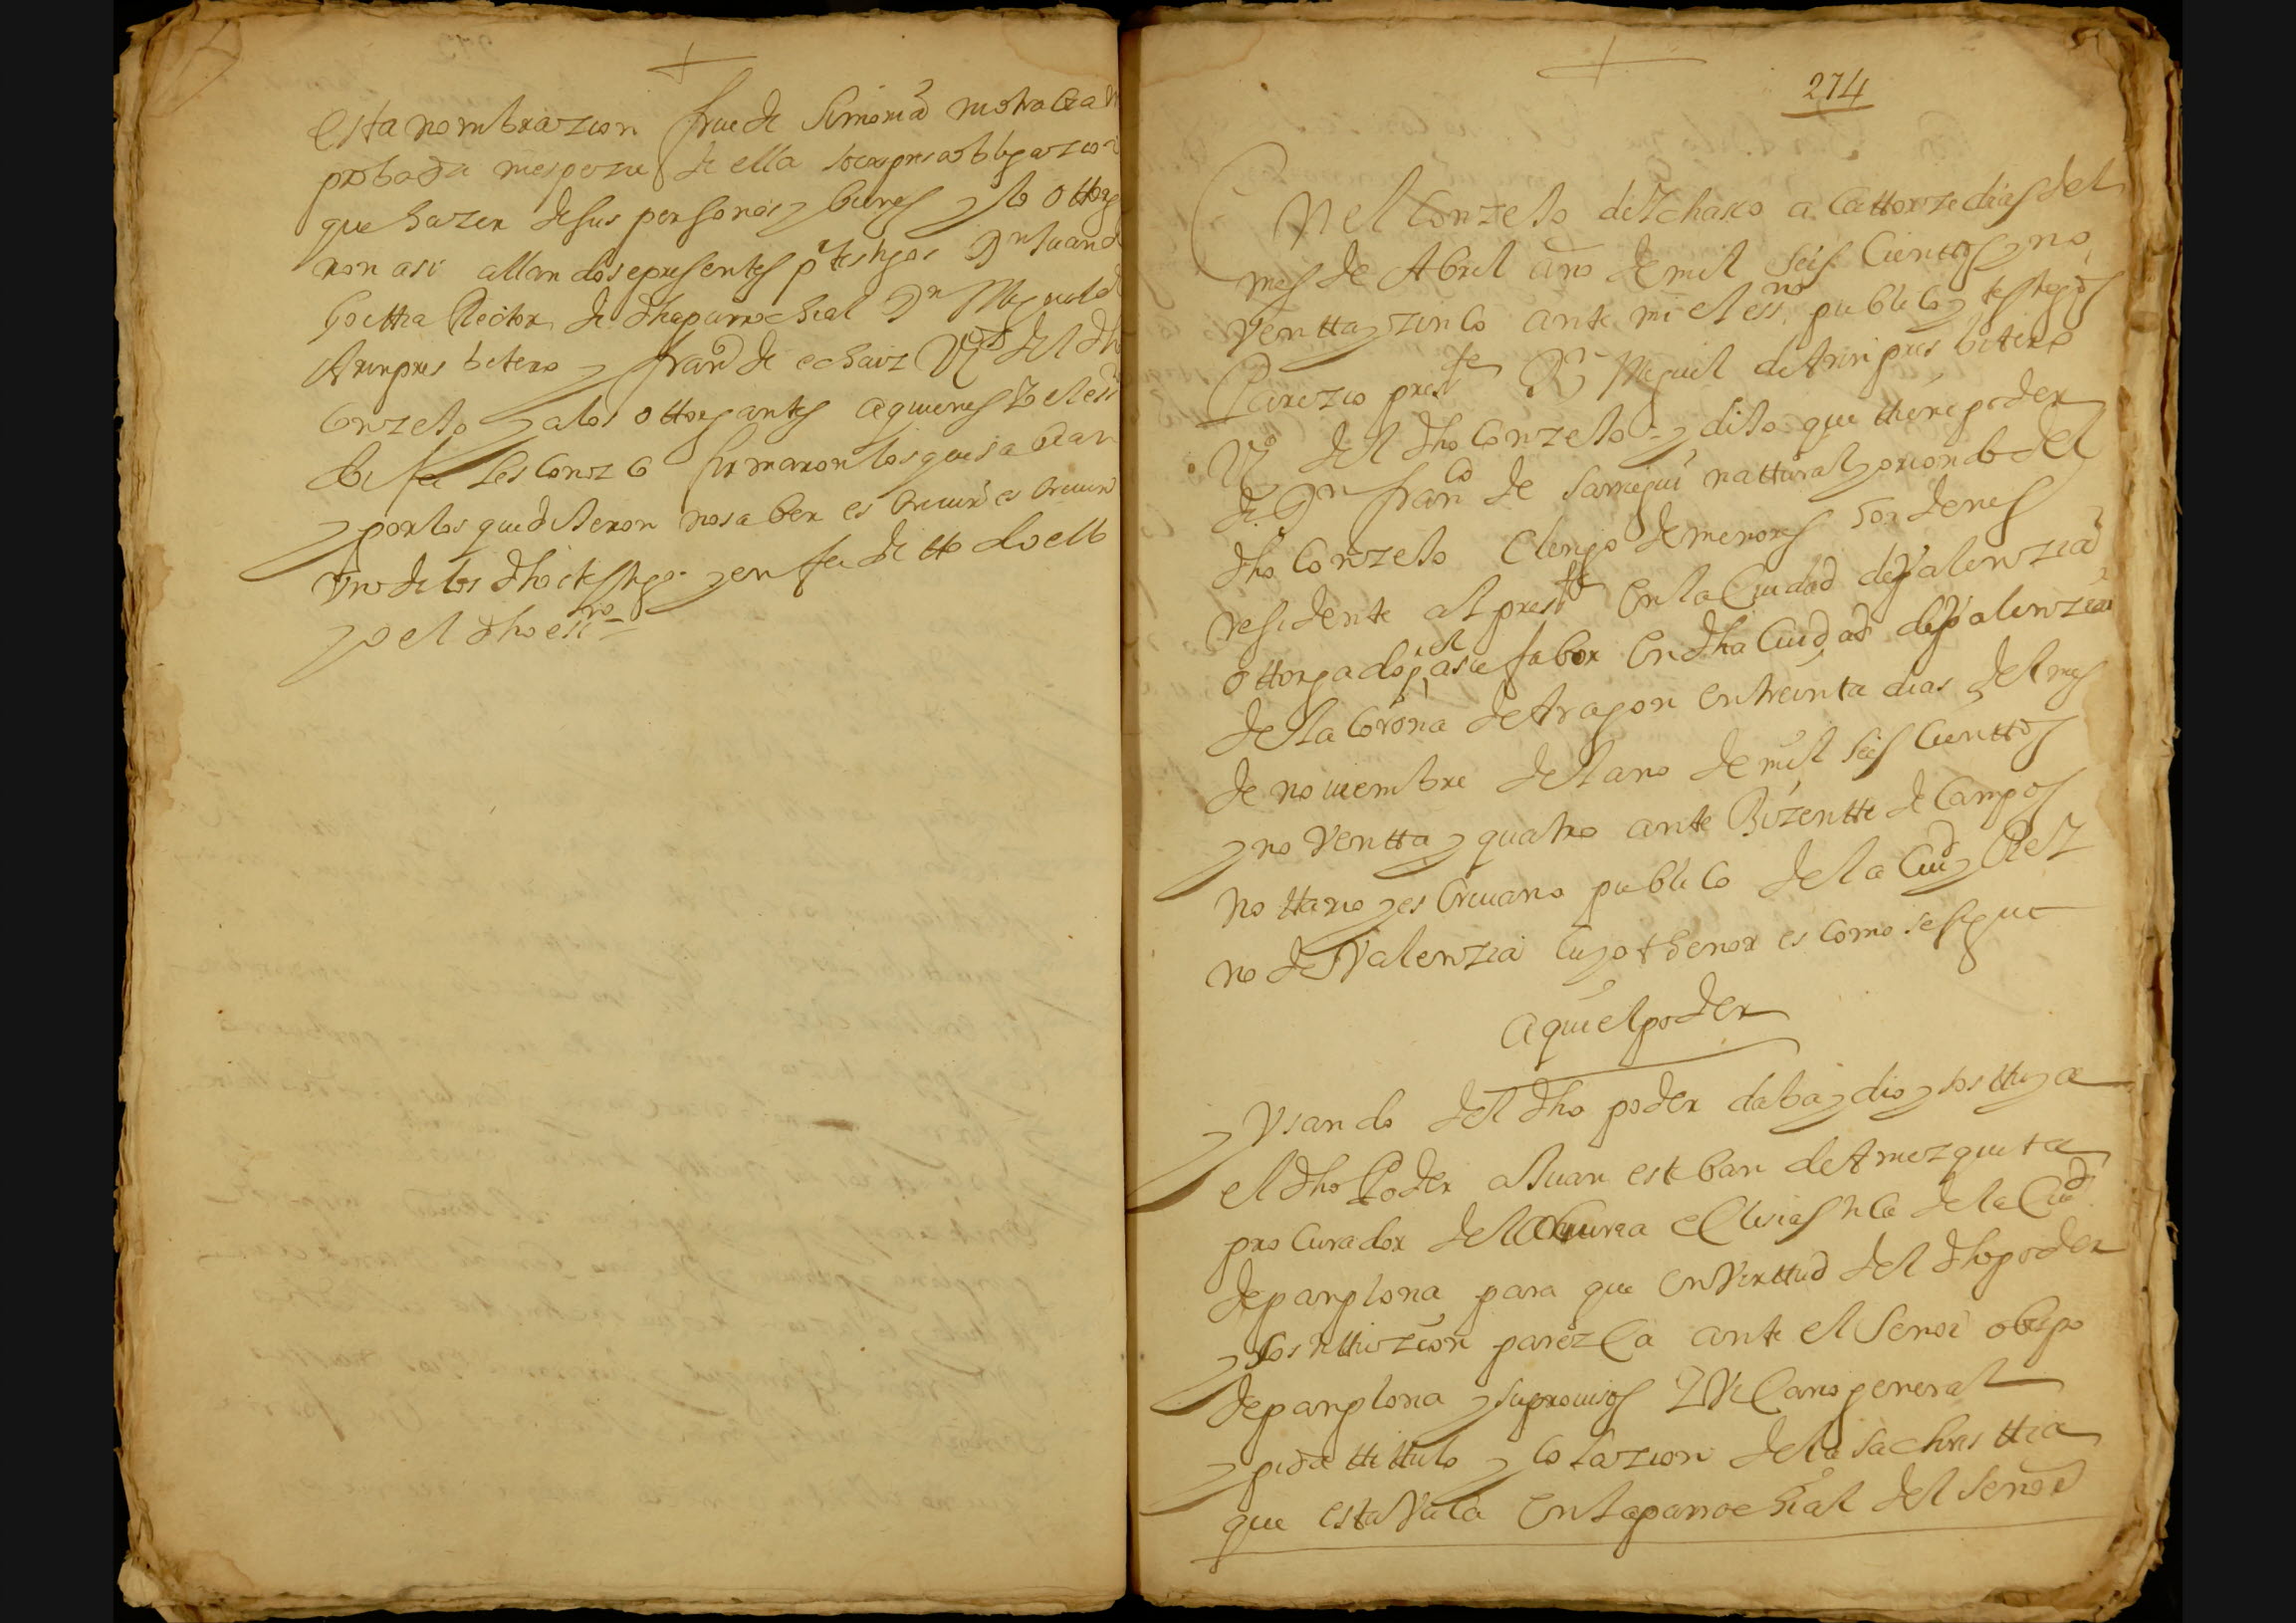 esta nombrazion fraude Simonia ni otra
probada ni especie de ella so expresa obligazion
que hazen de sus personas y bienes y lo ottorg
ron asi allandose presentes por testigos Dn Juan de
Goittia Rector de dha parrochial Dn Miguel de
Arin presbitero y franco de echaiz Vos del dho
Conzejo y a los ottorgantes a quienes Yo el essno
doi fee les conozco firmaron los que sabian
y por los que dijeron no saber escriuir
uno de los dhos testigos y en fee de ttodo ello
yo el dho essno
274
En el Conzejo de Ychaso a Cattorze dias del
mes de Abril año de mil seis Cienttos y no
Ventta y zinco ante mi el essno publico y testigos
Parezio preste Dn Miguel de Arin presbitero
Vo del dho Conzejo y dijo que ttiene poder
de Dn franco de Sarriegui nattural y oriondo del
dho Conzejo Clerigo de menores hordenes
residente al preste en la Ciudad de Valenzia
ottorgado a su fabor en dha Ciudad de Valenzia
de la Corona de Aragon en treinta dias del mes
de nouiembre del año de mil seis Cienttos
y noventta y quatro ante Bizentte de Campos
nottario y escriuano publico de la Ciud y Rey
no de Valenzia cuyo thenor es como se sigue
aqui el poder
y Vsando del dho poder daba y dio y sosttuya
el dho Poder a Juan esteban de Amezqueta
procurador de la Curia eclesiastica de la Ciud
de panplona para que en Virttud del dho poder
y sosttituzion parezca ante el Señor obispo
de panplona y su prouisor y Vicario general
y pida tittulo y colazion de la sachristtia
que esta Vaca en la parrochial del Señor